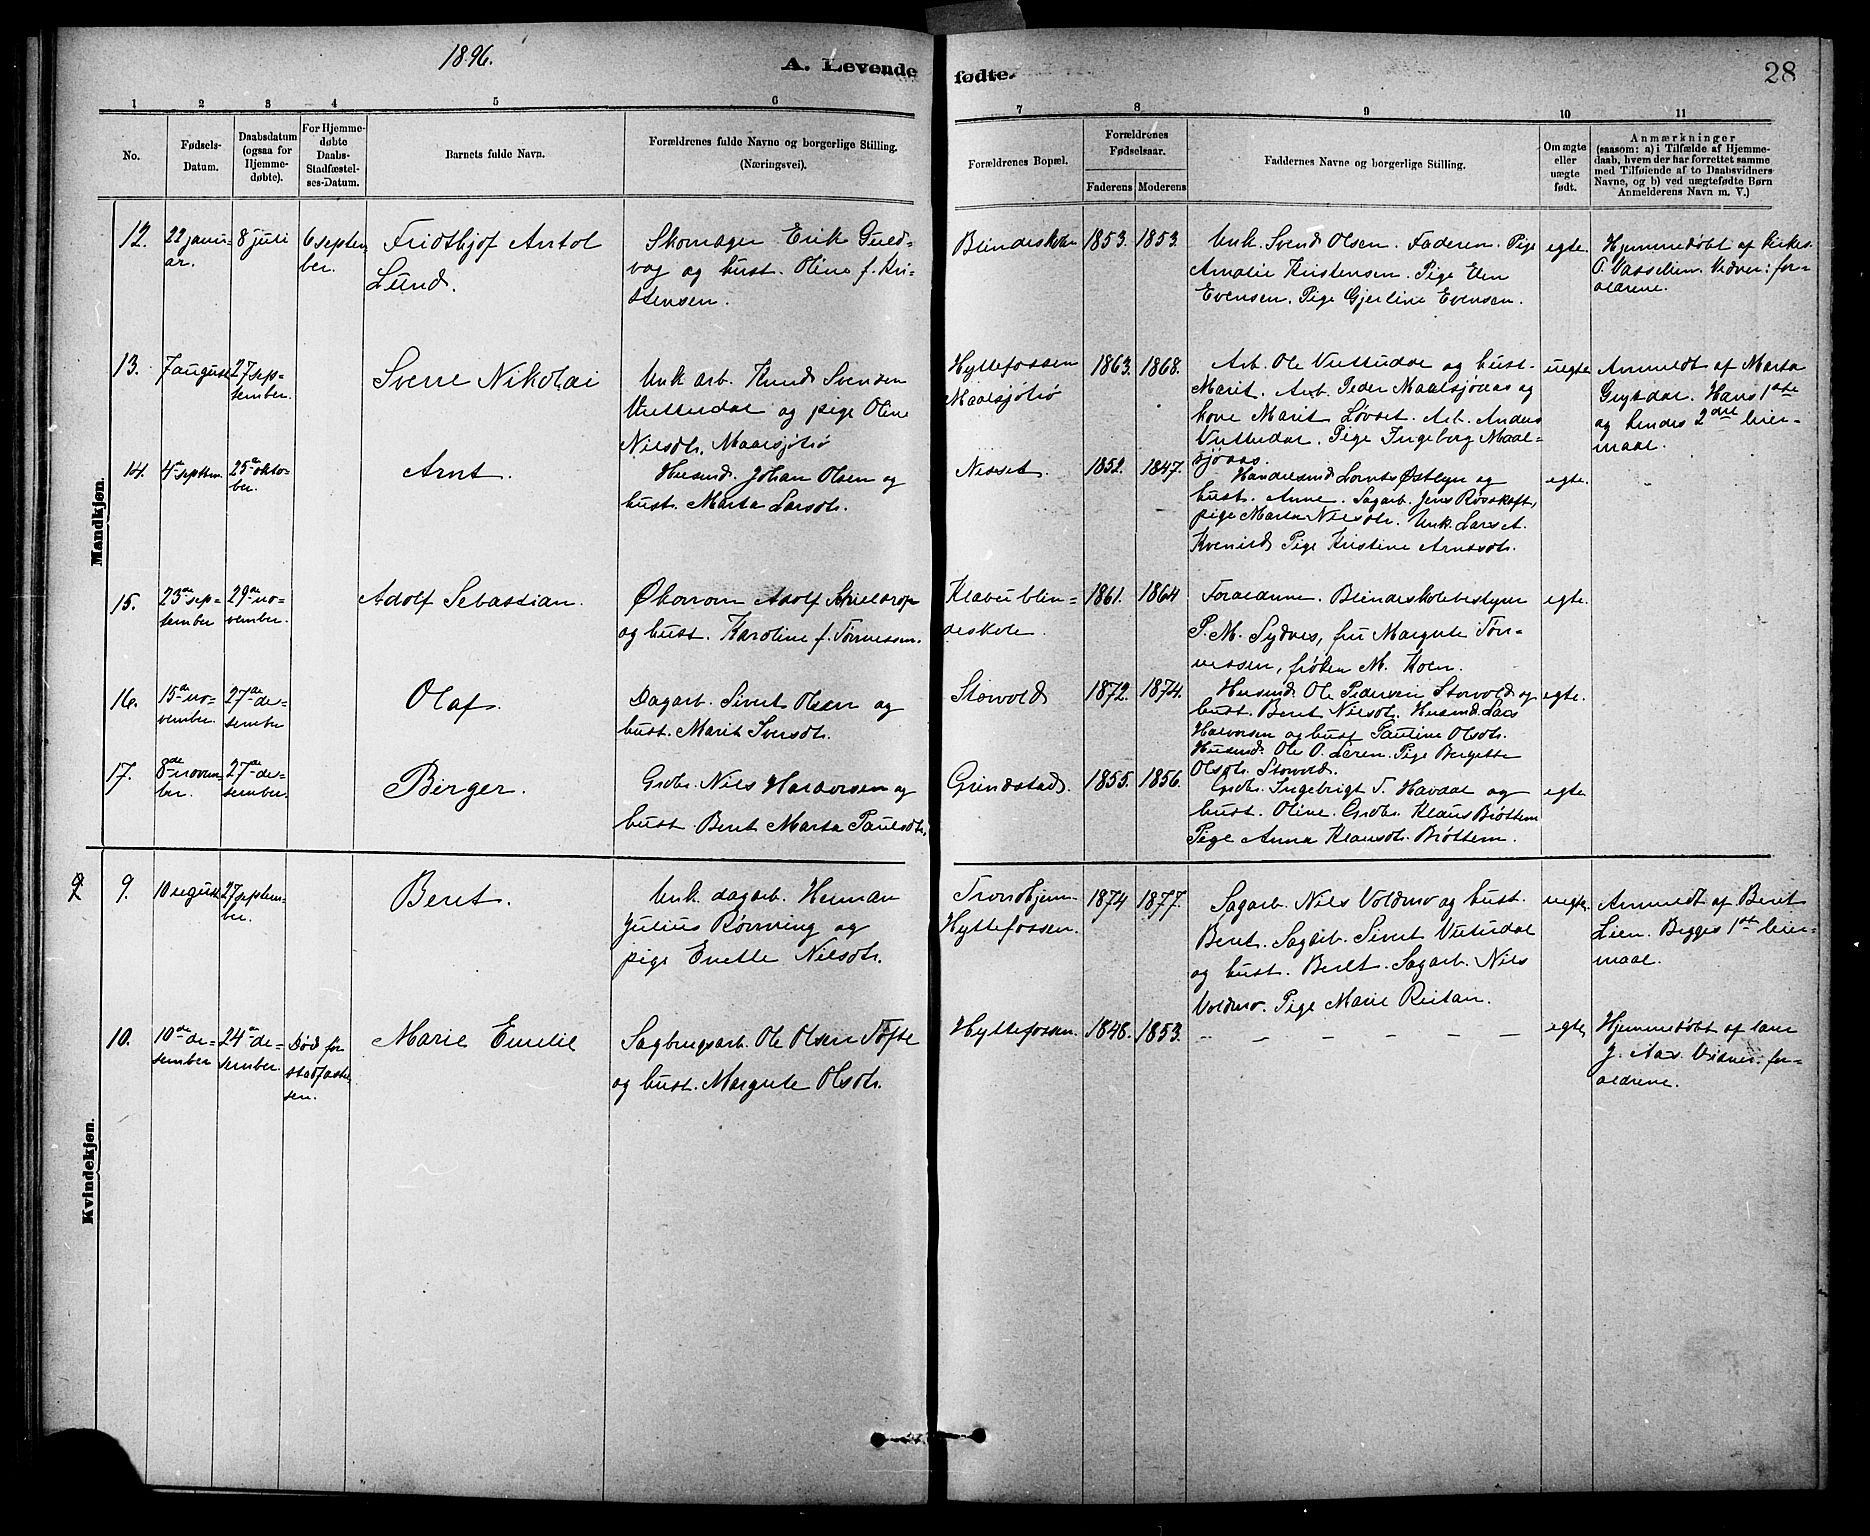 1896.
A. Levende fødte.
28
1 2 3 4 5 6 7 8 9 10 11
No.
Fødsels-
Datum.
Daabsdatum
(ogsaa for
Hjemme-
døbte).
For Hjemme-
døbte
Daabs-
Stadfæstel-
ses-Datum.
Barnets fulde Navn.
Forældrenes fulde Navne og borgerlige Stilling.
(Næringsvei).
Forældrenes Bopæl.
Forældrenes
Fødselsaar.
Faderens Moderens
Faddernes Navne og borgerlige Stilling.
Om ægte
eller
uægte
født.
Anmærkninger
(saasom: a) i Tilfælde af Hjemme-
daab, hvem der har forrettet samme
med Tilføiende af to Daabsvidners
Navne, og b) ved uægtefødte Børn
Anmelderens Navn m. V.)
Mandkjøn.
12.
22 janu-
ar.
8 juli
6 septem
ber.
Fridthjof Antol
Lund.
Skomager Erik Guld-
vog og hust. Oline f. Kri-
stensen.
Blindeskole
1853. 1853.
Unk. Svend Olsen. Faderen. Pige
Amalie Kristensen. Pige Elen
Evensen. Pige Gjerline Evensen.
egte.
Hjemmedøbt af kirkes.
O. Vasselien. Vidner: for-
ældrene.
13.
7 august
27 sep-
tember.
Sverre Nikolai
Unk arb. Knud Svendsen
Vutterdal og pige Oline
Nilsdtr. Maalsjøtrø
Hyttefossen
Maalsjøtrø
1863. 1868.
Arb. Ole Vuttudal og hust.
Marit. Arb. Peder Maalsjøaas og
kone Marit Løvset. Arb. Anders
Vuttudal. Pige Ingeborg Maal-
sjøaas.
uegte
Anmeldt af Marta
Grytdal. Hans 1ste
og hendes 2det leier-
maal.
14.
4de septbem.
25de okto-
ber.
Arnt.
Husmd. Johan Olsen og
hust. Marta Larsdtr.
Nisset.
1852. 1847.
Handelsmd. Lornts Østbyn og
hust. Anne. Sagarb. Jens Røskaft,
pige Marta Nilsdtr. Unk. Lars A.
Kvenild Pige Kristine Arnesdtr.
egte.
15.
23de sep-
tember
29de no-
vember.
Adolf Sebastian.
Økonom Adolf Skieldrop
og hust. Karoline f. Tønnessen.
Klæbu blin-
deskole.
1861. 1864
Forældrene. Blindeskolebestyrer
P. M. Sydnes, fru Margrete Tøn-
nessen, frøken M. Koen.
egte.
16.
15de no-
vember.
27de de-
sember
Olaf.
Dagarb. Sivert Olsen og
hust. Marit Iversdtr.
Storvold
1872. 1874.
Husmd. Ole Pedersen Storvold og
hust. Beret Nilsdtr. Husmd. Lars
Halvorsen og hust Pauline Olsdtr.
Husmd. Ole O. Leren. Pige Bergette
Olsdtr. Storvold.
egte.
17.
8de novem
ber.
27de de-
sember.
Birger.
Grdbr. Nils Halvorsen og
hust. Beret Marta Paulsdtr.
Grindstad.
1855. 1856.
Grdbr. Ingebrigt T. Havdal og
hust. Oline. Grdbr. Klaus Brøttem
Pige Anna Klausdtr. Brøttem.
egte
Kvindekjøn.
9.
10 august
27 septem-
ber.
Beret.
Unk. dagarb. Herman
Julius Rønning og
pige Enette Nilsdtr.
Trondhjem-
Hyttefossen.
1874 1877.
Sagarb. Nils Voldmo og hust.
Beret. Sagarb. Sivert Vuttudal
og hust. Beret. Sagarb. Nils
Voldmo. Pige Marie Reitan.
uegte.
Anmeldt af Beret
Lien. Begges 1ste leier-
maal.
10.
10de de-
sember
24de de-
sember.
Død før
stadfæstel
sen.
Marie Emelie
Sagbrugsarb. Ole Olsen Tøfte
og hust. Margrete Olsdtr.
Hyttefossen.
1848. 1853.
– – – – – –
egte
Hjemmedøbt af lærer
J. Aas. Vidner: for-
ældrene.